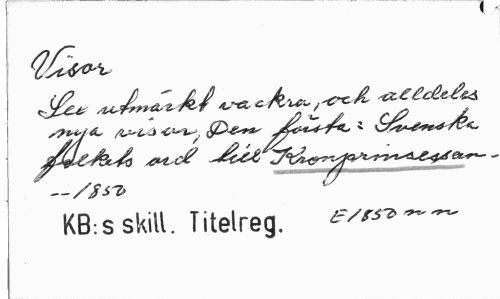 Visor
Sex utmärkt vackra, och alldeles
nya visor, Den första: Svenska
folkets ord till Kronprinsessan -
--1850
KB:s skill. Titelreg.
E1850 n n